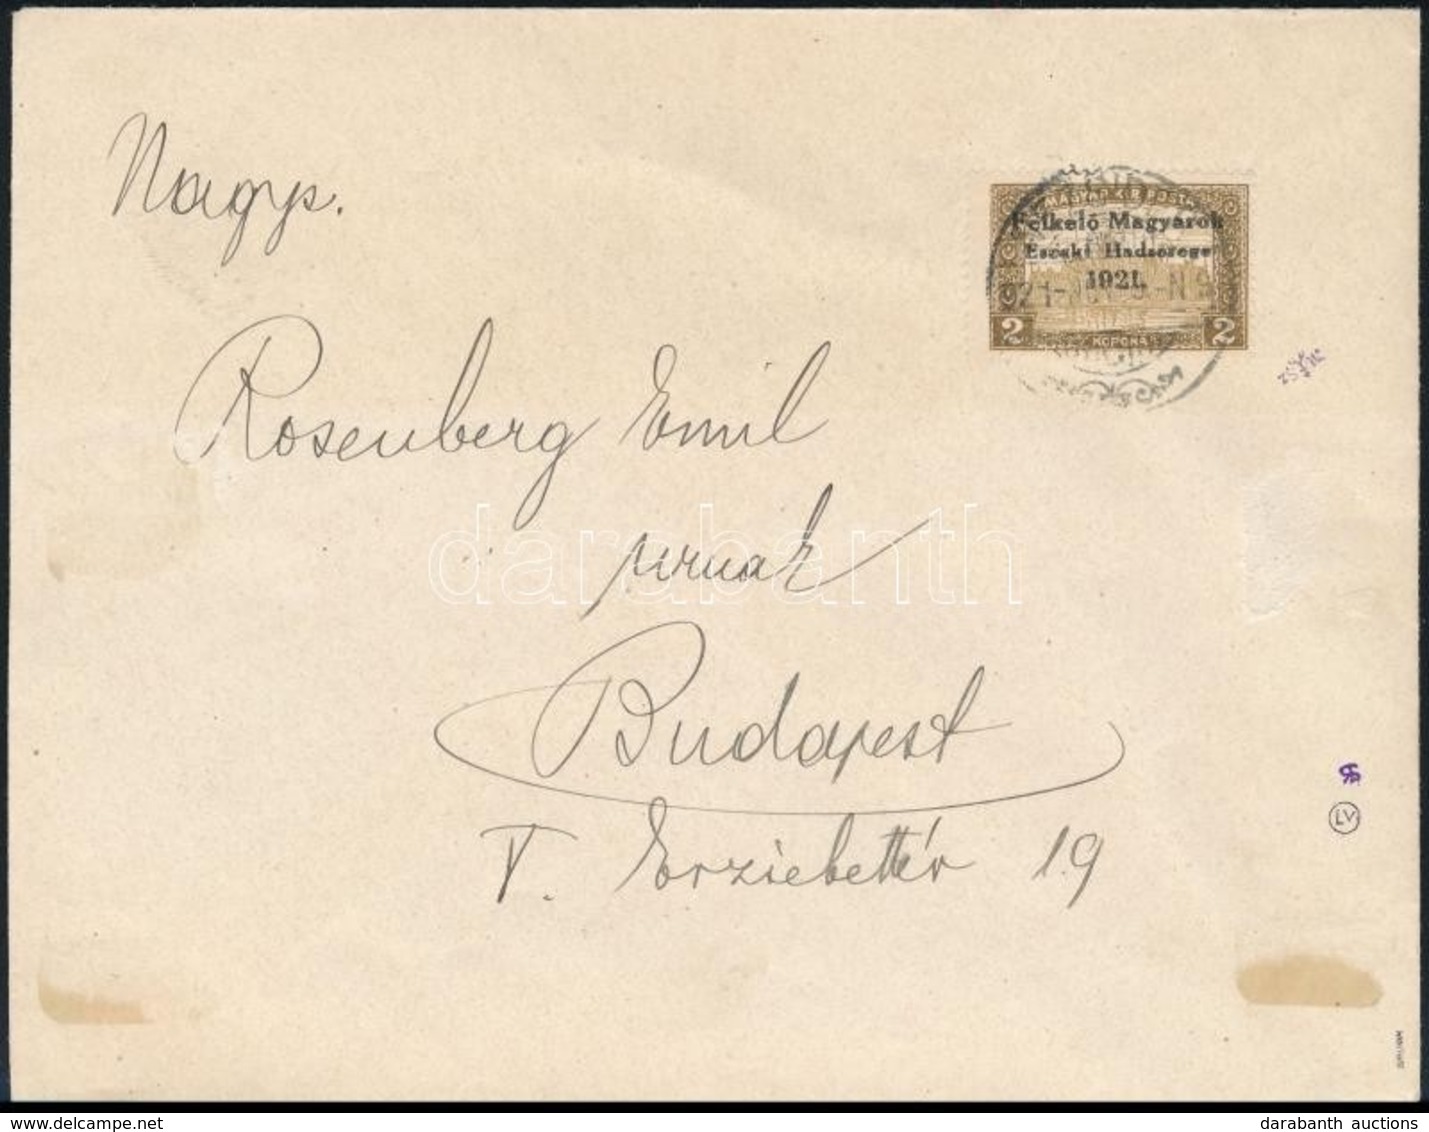 Nagys.
MAGYAR KIR POSTA
Felkelő Magyarok
Északi Hadserege
1921.
2 KORONA 2
Rosenberg Emil
urnak
Budapest
V. Erzsiebettér 19
LV
darabanth
darabanth auctions